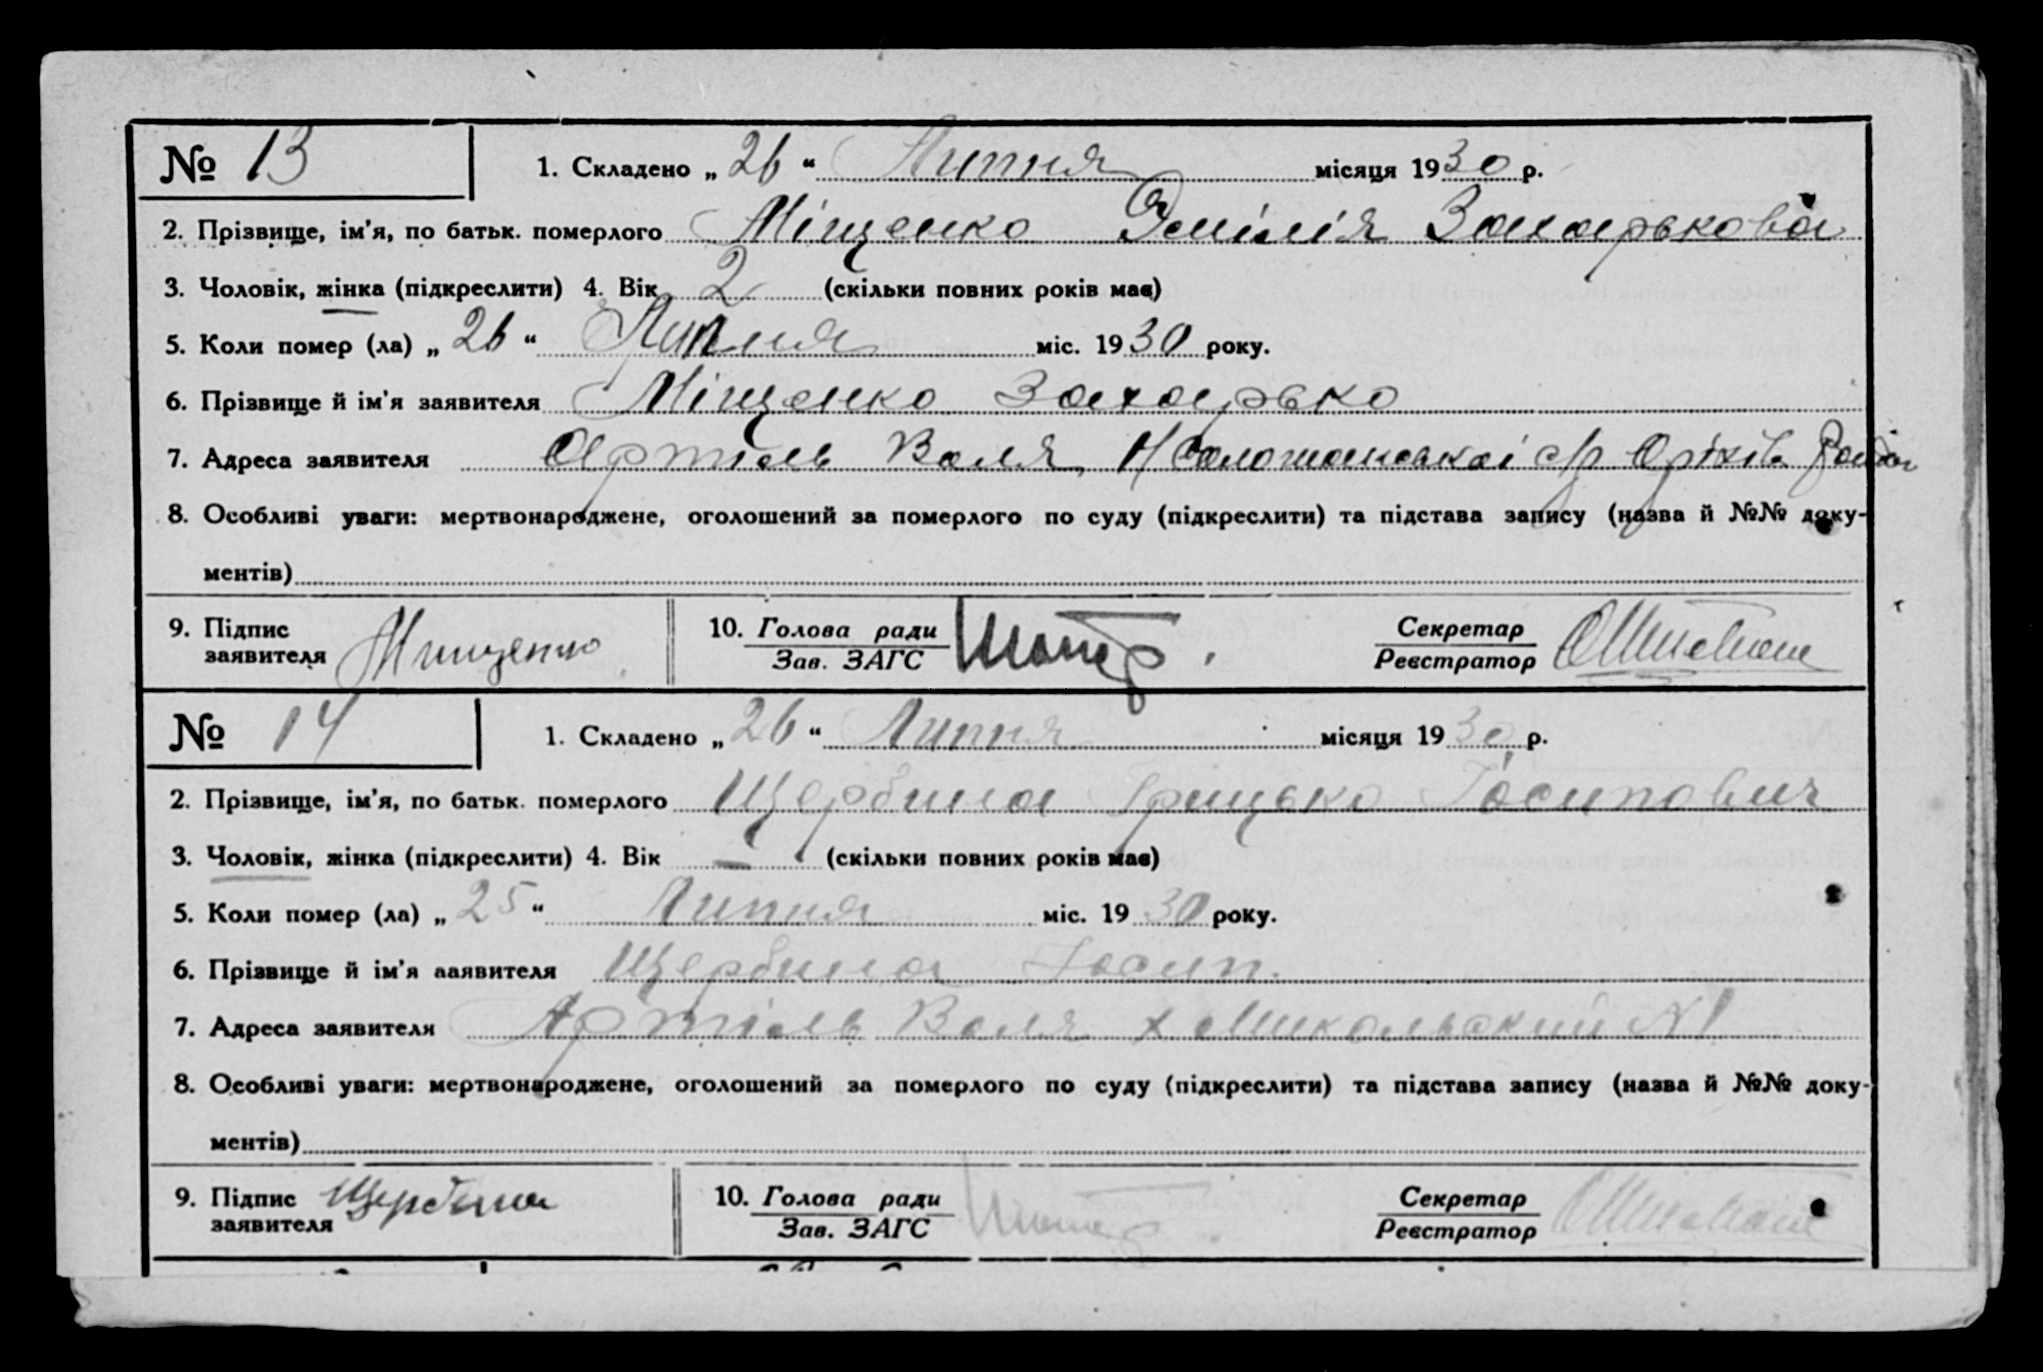 № 13 1. Складено „ 26 “ Липня місяця 1930 р.
2. Прізвище, ім'я, по батьк. померлого Міщенко Емілія Захарькова
3. Чоловік, жінка (підкреслити) 4. Вік 2 (скільки повних років має)
5. Коли помер (ла) „ 26 “ Липня міс. 1930 року.
6. Прізвище й ім'я заявителя Міщенко Захарько
7. Адреса заявителя Артіль Воля, с/р Оріхів
8. Особливі уваги: мертвонароджене, оголошений за померлого по суду (підкреслити) та підстава запису (назва й №№ доку-
ментів)
9. Підпис заявителя Мищенко 10. Голова ради Зав. ЗАГС Секретар Реєстратор
№ 14 1. Складено „ 26 “ Липня місяця 1930 р.
2. Прізвище, ім'я, по батьк. померлого Щербина Грицько Йосипович
3. Чоловік, жінка (підкреслити) 4. Вік — (скільки повних років має)
5. Коли помер (ла) „ 25 “ Липня міс. 1930 року.
6. Прізвище й ім'я заявителя Щербина Йосип.
7. Адреса заявителя Артіль Воля х Микольский №1
8. Особливі уваги: мертвонароджене, оголошений за померлого по суду (підкреслити) та підстава запису (назва й №№ доку-
ментів)
9. Підпис заявителя Щербина 10. Голова ради Зав. ЗАГС Секретар Реєстратор